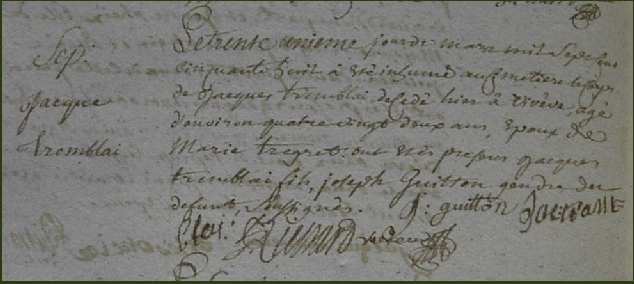 Sep.
Jacque
tremblai
Le trente unieme jour de mars mil sept cent
cinquante huit à été inhumé au cimetiere le corps
de Jacques tremblai decedé hier à agé
d'environ quatre vingt deux ans, époux de
Marie ont été presens jacques
tremblai fils, joseph Guitton gendre du
defunt, soussignés. J: guitton